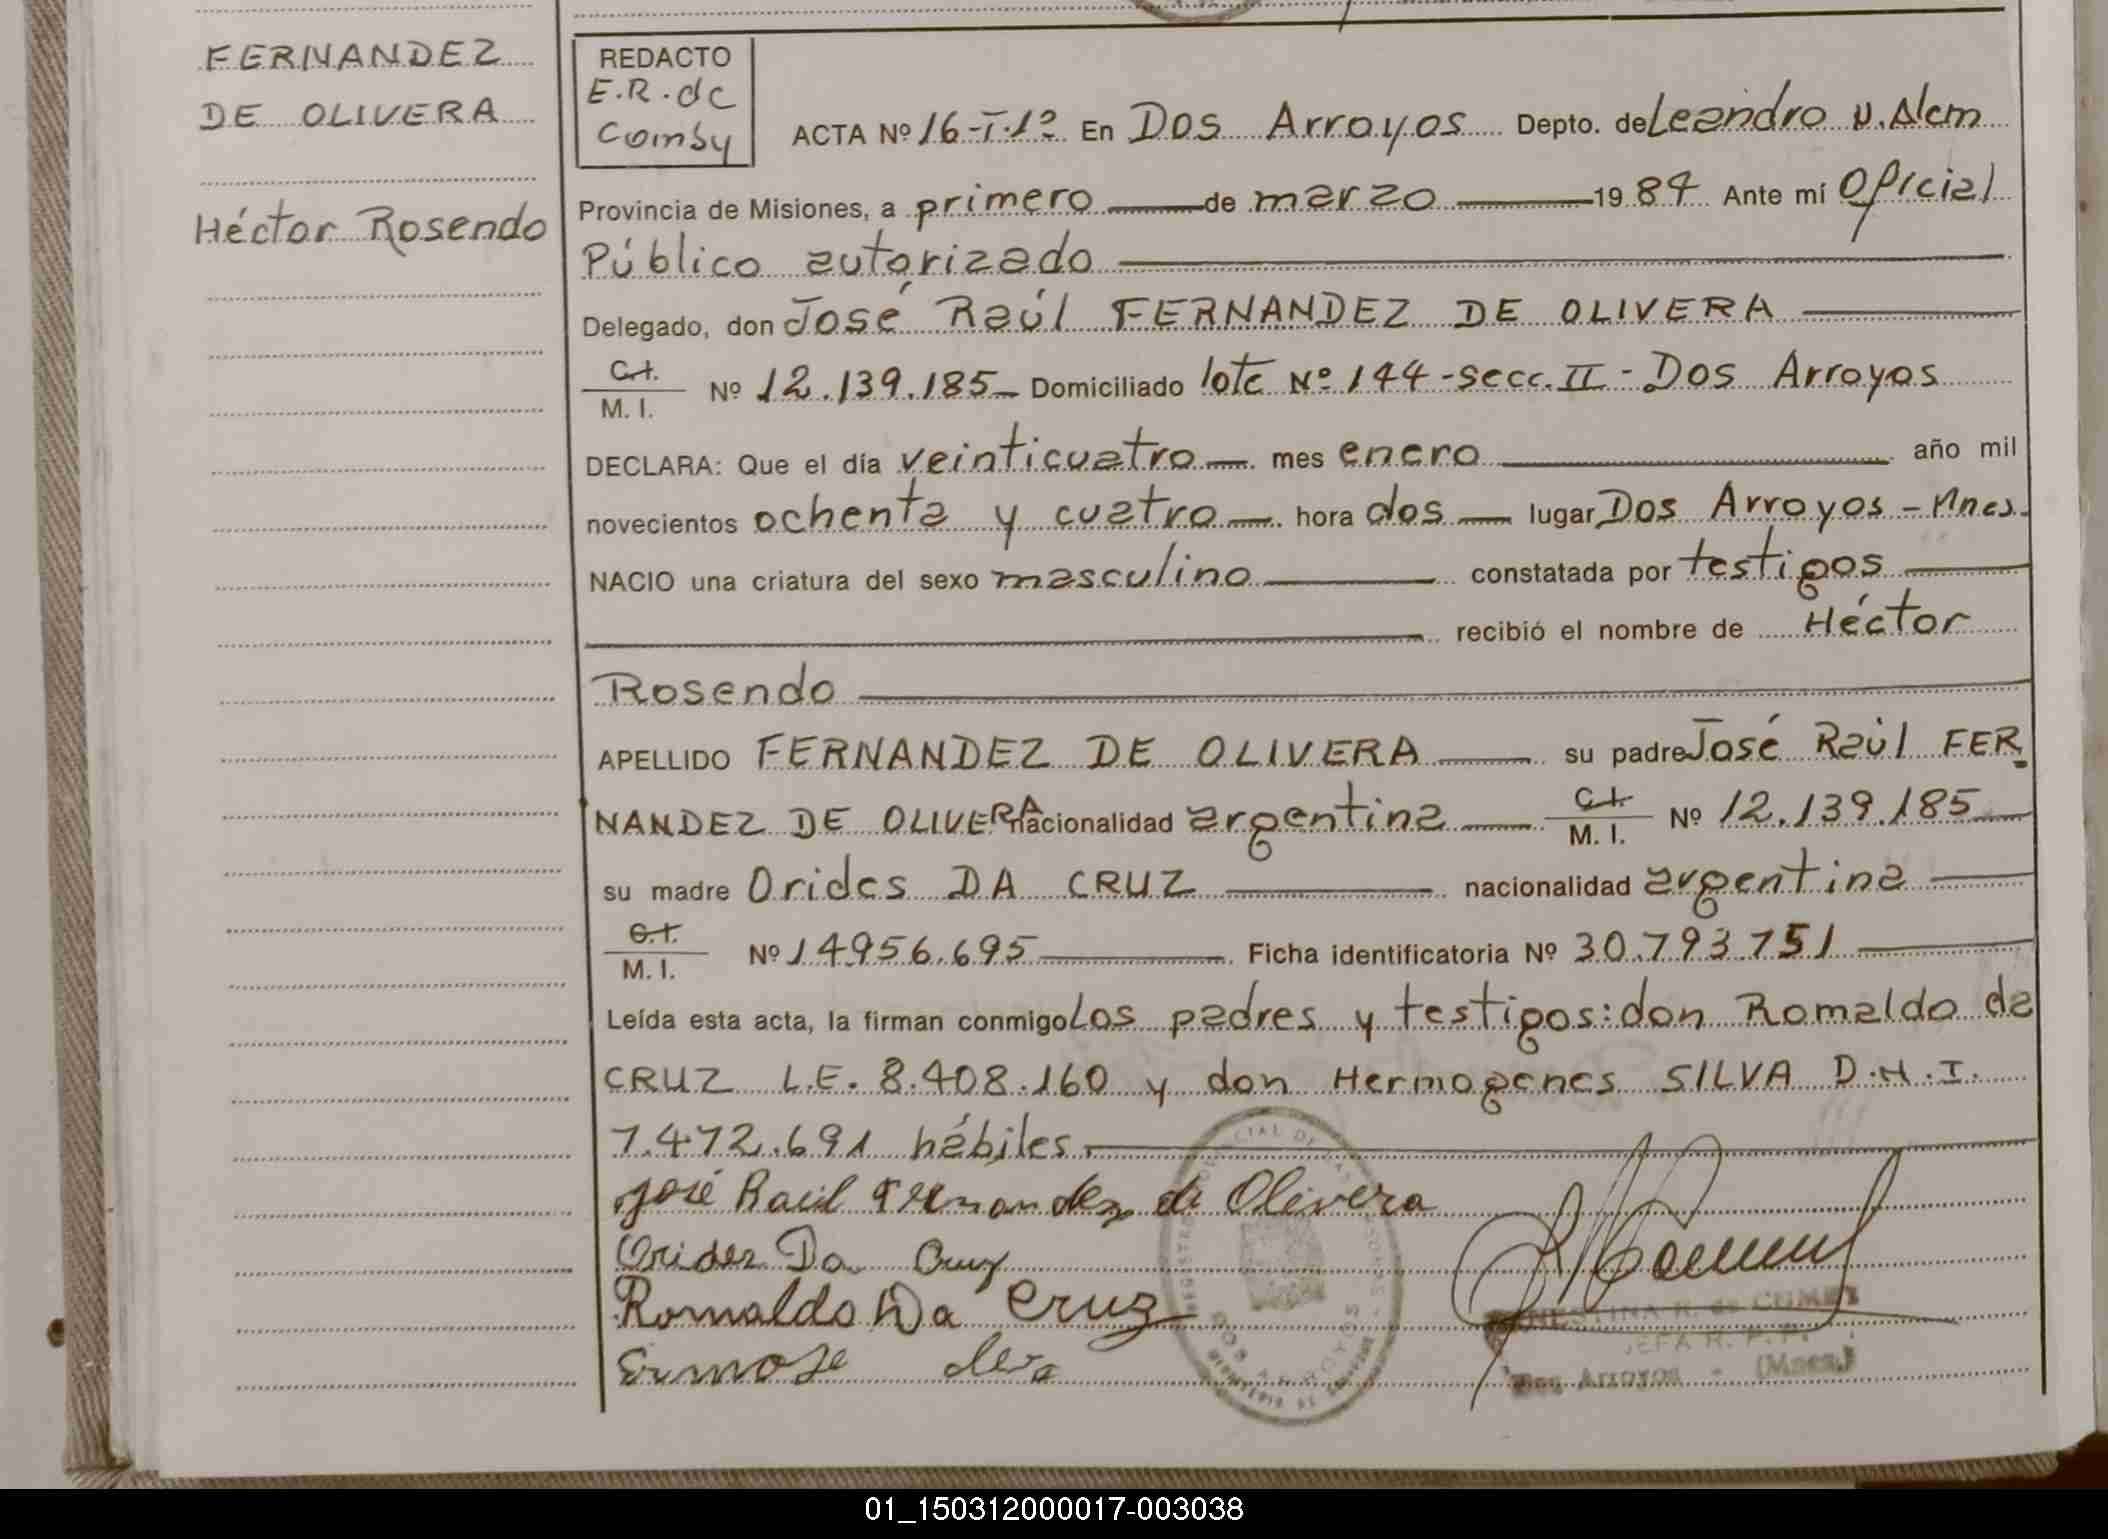 FERNANDEZ
DE OLIVERA
Héctor Rosendo
REDACTO
E.R. de
Comby
ACTA Nº 16-T.1º En Dos Arroyos Depto. de Leandro N. Alem
Provincia de Misiones, a primero de marzo 1984 Ante mí Oficial
Público autorizado
Delegado, don José Raúl FERNANDEZ DE OLIVERA
C.I.
M. I. Nº 12.139.185 Domiciliado lote Nº 144-secc. II - Dos Arroyos
DECLARA: Que el día veinticuatro mes enero año mil
novecientos ochenta y cuatro hora dos lugar Dos Arroyos - Mnes.
NACIO una criatura del sexo masculino constatada por testigos
recibió el nombre de Héctor
Rosendo
APELLIDO FERNANDEZ DE OLIVERA su padre José Raúl FER
NANDEZ DE OLIVERA nacionalidad argentina C.I. M. I. Nº 12.139.185
su madre Orides DA CRUZ nacionalidad argentina
C.I.
M. I. Nº 14956.695 Ficha identificatoria Nº 30.793.751
Leída esta acta, la firman conmigo Los padres y testigos: don Romaldo da
CRUZ L.E. 8.408.160 y don Hermogenes SILVA D.N.I.
7.472.691 hábiles.
José Raúl Fernandez de Olivera
Orides Da Cruz
Romaldo Da Cruz
DOS ARROYOS
Dos Arroyos - (Mnes.)
01_150312000017-003038